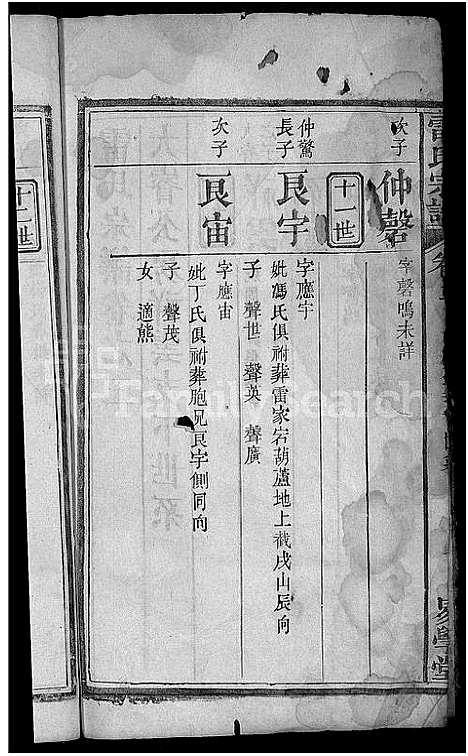 雷氏宗譜
易學堂
次子
仲磬
字磬鳴未詳
十一世
仲驚
長子
艮宇
字應宇
妣馮氏俱祔葬雷家宕葫蘆地上截戌山辰向
子 聲世 聲英 聲廣
次子
艮宙
字應宙
妣丁氏俱祔葬胞兄艮宇側同向
子 聲茂
女 適熊
十二世
FamilySearch